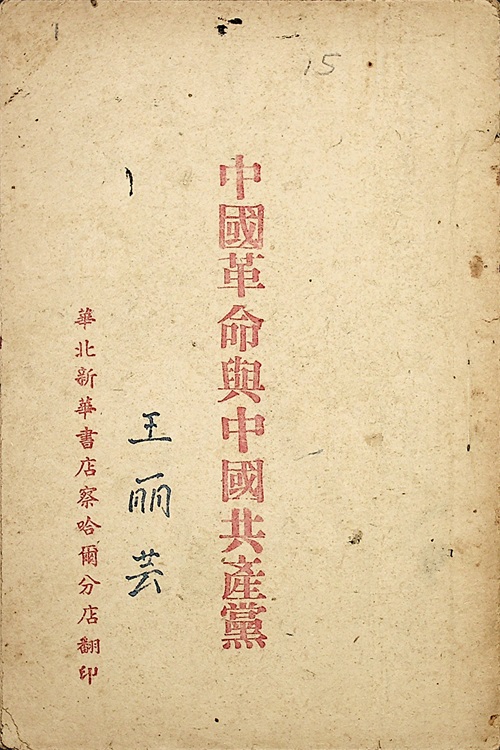 15
中國革命與中國共產黨
王丽芸
華北新華書店察哈爾分店翻印